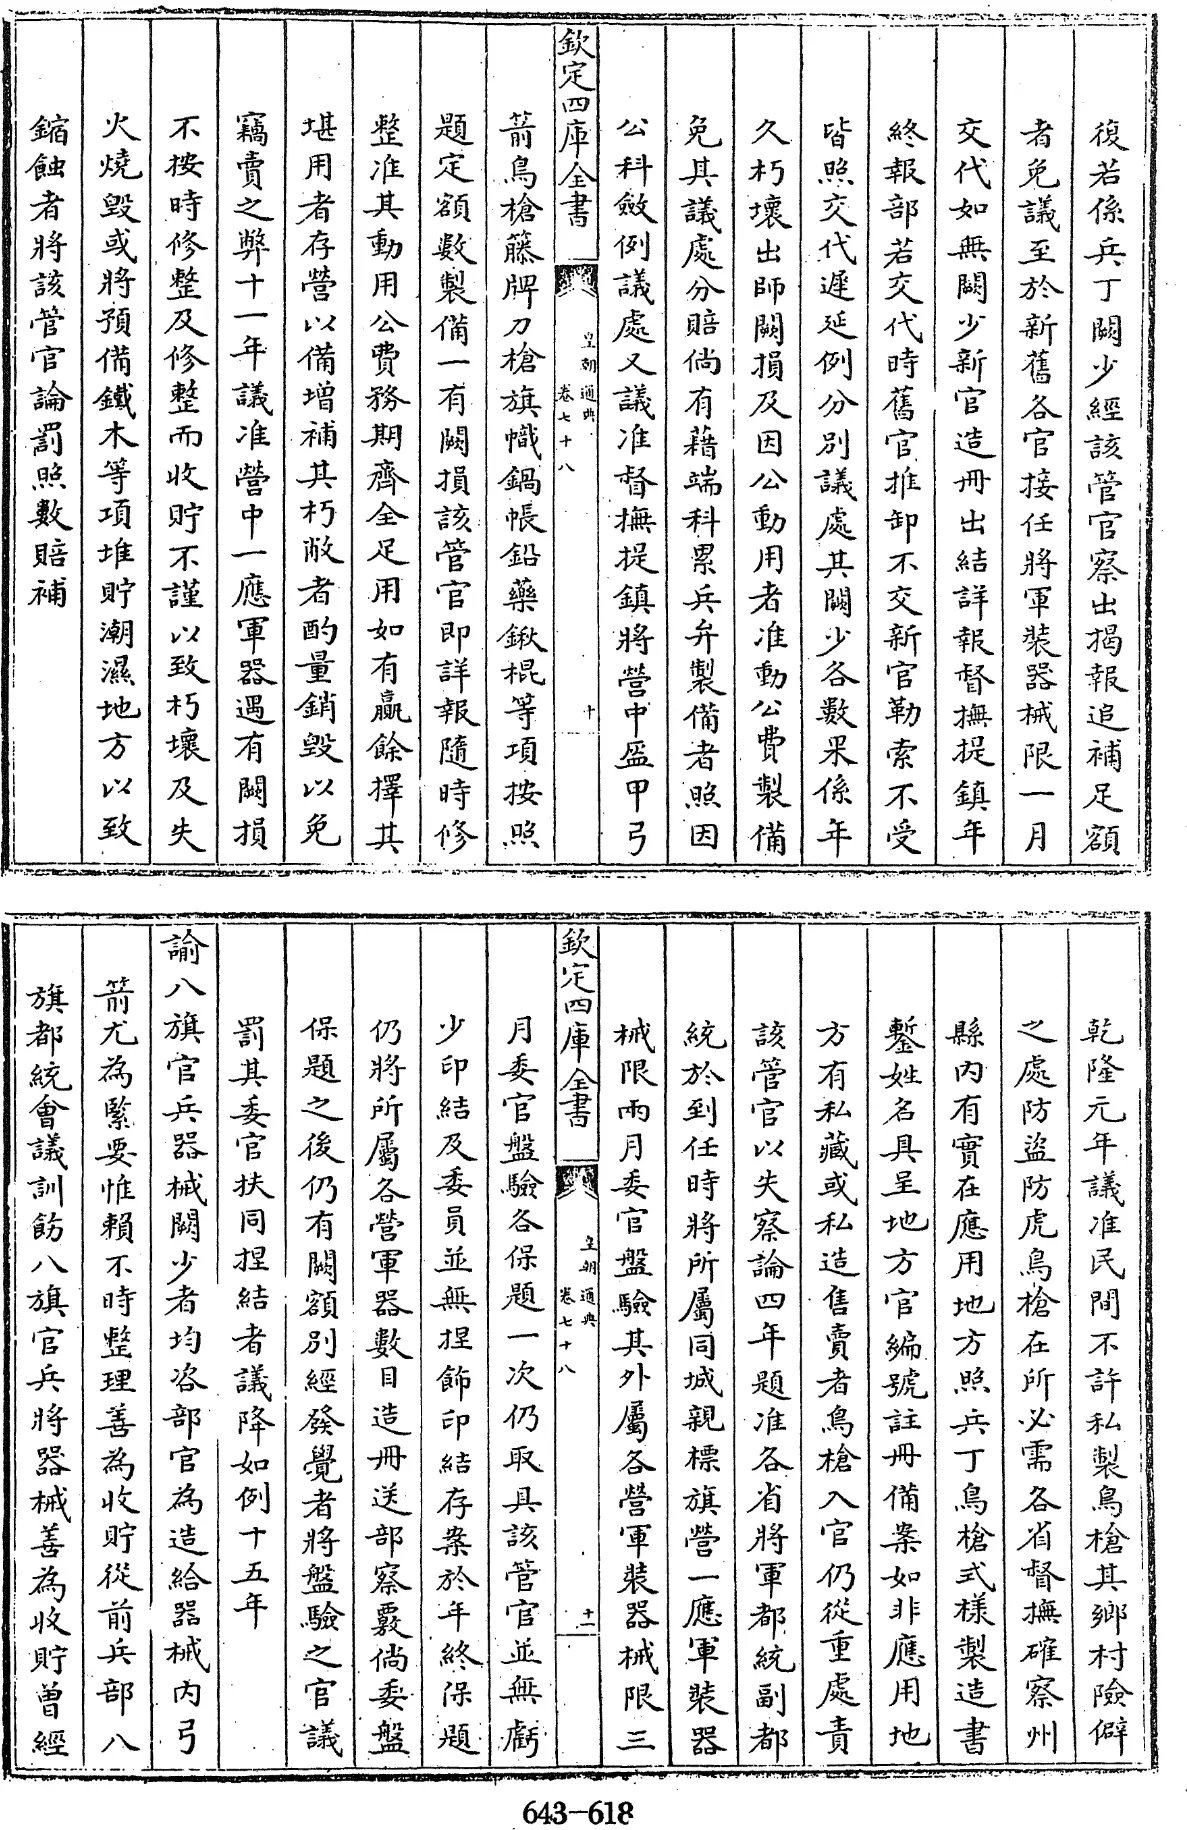 復若係兵丁闕少經該管官察出揭報追補足額
者免議至於新舊各官接任將軍裝器械限一月
交代如無闕少新官造冊出結詳報督撫提鎮年
終報部若交代時舊官推卸不交新官勒索不受
皆照交代遲延例分別議處其闕少各數果係年
久朽壞出師闕損及因公動用者准動公費製備
免其議處分賠倘有藉端科累兵弁製備者照因
公科斂例議處又議准督撫提鎮將營中盔甲弓
欽定四庫全書
皇朝通典
卷七十八
十
箭鳥槍籐牌刀槍旗幟鍋帳鉛藥鍬棍等項按照
題定額數製備一有闕損該管官即詳報隨時修
整准其動用公費務期齊全足用如有贏餘擇其
堪用者存營以備增補其朽敝者酌量銷毀以免
竊賣之弊十一年議准營中一應軍器遇有闕損
不按時修整及修整而收貯不謹以致朽壞及失
火燒毀或將預備鐵木等項堆貯潮濕地方以致
鏥蝕者將該管官論罰照數賠補
乾隆元年議准民間不許私製鳥槍其鄉村險僻
之處防盜防虎鳥槍在所必需各省督撫確察州
縣內有實在應用地方照兵丁鳥槍式樣製造書
鏨姓名具呈地方官編號註冊備案如非應用地
方有私藏或私造售賣者鳥槍入官仍從重處責
該管官以失察論四年題准各省將軍都統副都
統於到任時將所屬同城親標旗營一應軍裝器
械限兩月委官盤驗其外屬各營軍裝器械限三
欽定四庫全書
皇朝通典
卷七十八
十一
月委官盤驗各保題一次仍取具該管官並無虧
少印結及委員並無捏飾印結存案於年終保題
仍將所屬各營軍器數目造冊送部察覈倘委盤
保題之後仍有闕額別經發覺者將盤驗之官議
罰其委官扶同捏結者議降如例十五年
諭八旗官兵器械闕少者均咨部官為造給器械內弓
箭尤為緊要惟賴不時整理善為收貯從前兵部八
旗都統會議訓飭八旗官兵將器械善為收貯曾經
643-618